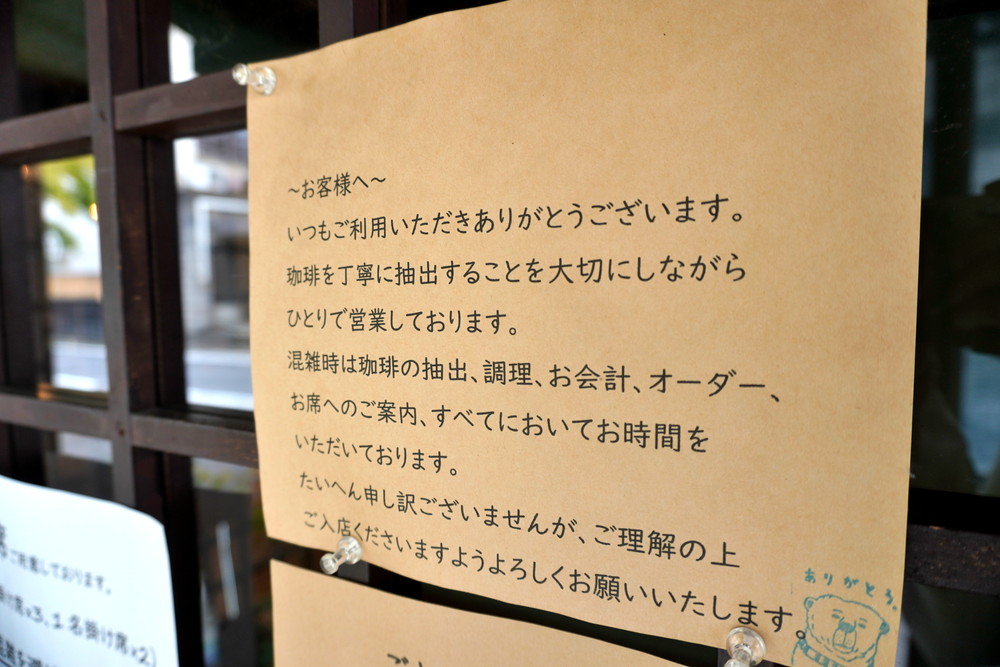 ～お客様へ～
いつもご利用いただきありがとうございます。
珈琲を丁寧に抽出することを大切にしながら
ひとりで営業しております。
混雑時は珈琲の抽出、調理、お会計、オーダー、
お席へのご案内、すべてにおいてお時間を
いただいております。
たいへん申し訳ございませんが、ご理解の上
ご入店くださいますようよろしくお願いいたします。
ありがとう。
しております。
掛け席×3、1名掛け席×2)